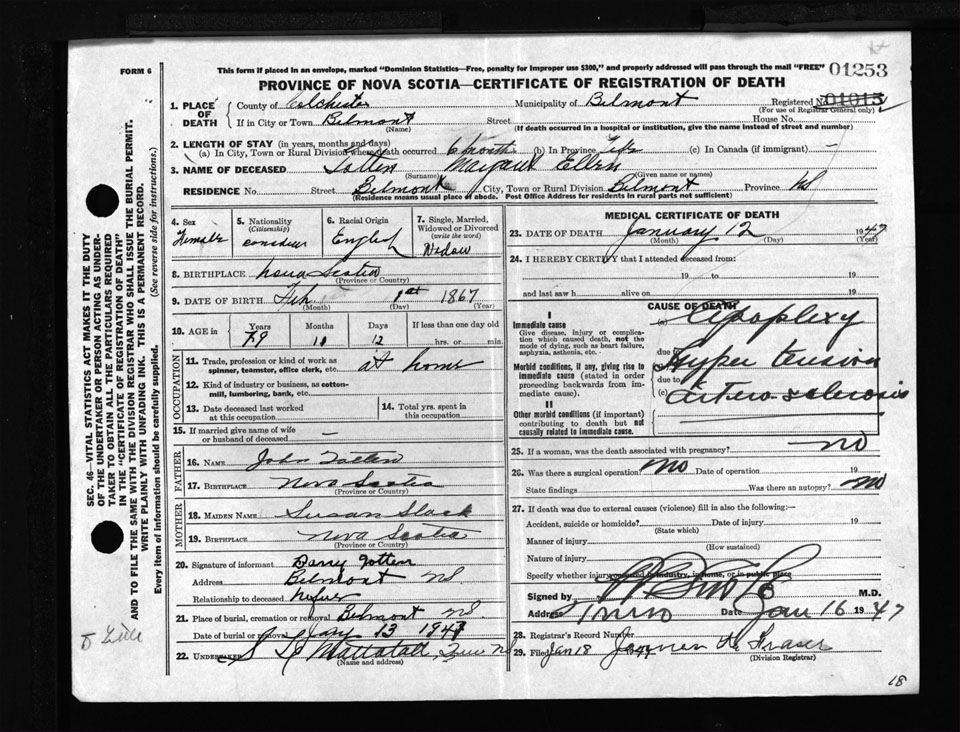 FORM 6
This form if placed in an envelope, marked "Dominion Statistics—Free, penalty for improper use $300," and properly addressed will pass through the mail "FREE"
01253
PROVINCE OF NOVA SCOTIA—CERTIFICATE OF REGISTRATION OF DEATH
1. PLACE OF DEATH
County of Colchester Municipality of Belmont Registered No. 01015
(For use of Registrar General only)
If in City or Town Belmont Street House No.
(Name) (If death occurred in a hospital or institution, give the name instead of street and number)
2. LENGTH OF STAY (in years, months and days)
(a) In City, Town or Rural Division where death occurred 6 month (b) In Province Life (c) In Canada (if immigrant) —
3. NAME OF DECEASED Totten Margaret Ellen
(Surname) (Given name or names)
RESIDENCE No. Street Belmont City, Town or Rural Division Belmont Province NS
(Residence means usual place of abode. Post Office Address for residents in rural parts not sufficient)
4. Sex Female
5. Nationality (Citizenship)
6. Racial Origin English
7. Single, Married, Widowed or Divorced (write the word) Widow
8. BIRTHPLACE Nova Scotia
(Province or Country)
9. DATE OF BIRTH Feb. 1st 1867
(Month) (Day) (Year)
10. AGE in Years 79 Months 11 Days 12 If less than one day old hrs. or min.
OCCUPATION
11. Trade, profession or kind of work as spinner, teamster, office clerk, etc. at home
12. Kind of industry or business, as cotton-mill, lumbering, bank, etc.
13. Date deceased last worked at this occupation
14. Total yrs. spent in this occupation
15. If married give name of wife or husband of deceased —
FATHER
16. NAME John Totten
17. BIRTHPLACE Nova Scotia
(Province or Country)
MOTHER
18. MAIDEN NAME Susan Slack
19. BIRTHPLACE Nova Scotia
(Province or Country)
20. Signature of informant Totten
Address Belmont NS
Relationship to deceased
21. Place of burial, cremation or removal Belmont NS
Date of burial or removal Jany 13 1947
22. UNDERTAKER Mattatall NS
(Name and address)
MEDICAL CERTIFICATE OF DEATH
23. DATE OF DEATH January 12 1947
(Month) (Day) (Year)
24. I HEREBY CERTIFY that I attended deceased from:
19 to 19
and last saw h alive on 19
CAUSE OF DEATH
I
Immediate cause
Give disease, injury or complication which caused death, not the mode of dying, such as heart failure, asphyxia, asthenia, etc.
(a) Apoplexy
Morbid conditions, if any, giving rise to immediate cause (stated in order proceeding backwards from immediate cause).
due to Hyper tension
due to
(c) Arterio-sclerosis
II
Other morbid conditions (if important) contributing to death but not causally related to immediate cause.
25. If a woman, was the death associated with pregnancy? no
26. Was there a surgical operation? No Date of operation 19
State findings Was there an autopsy? No
27. If death was due to external causes (violence) fill in also the following:—
Accident, suicide or homicide? Date of injury 19
(State which)
Manner of injury
(How sustained)
Nature of injury
Specify whether injury occurred in industry, in home, or in public place
Signed by M.D.
Address Truro Date Jan 16 1947
28. Registrar's Record Number
29. Filed Jan 18 1947 Fraser
(Division Registrar)
18
SEC. 46—VITAL STATISTICS ACT MAKES IT THE DUTY
OF THE UNDERTAKER OR PERSON ACTING AS UNDER-
TAKER TO OBTAIN ALL THE PARTICULARS REQUIRED
IN THE "CERTIFICATE OF REGISTRATION OF DEATH"
AND TO FILE THE SAME WITH THE DIVISION REGISTRAR WHO SHALL ISSUE THE BURIAL PERMIT.
WRITE PLAINLY WITH UNFADING INK. THIS IS A PERMANENT RECORD.
Every item of information should be carefully supplied. (See reverse side for instructions.)